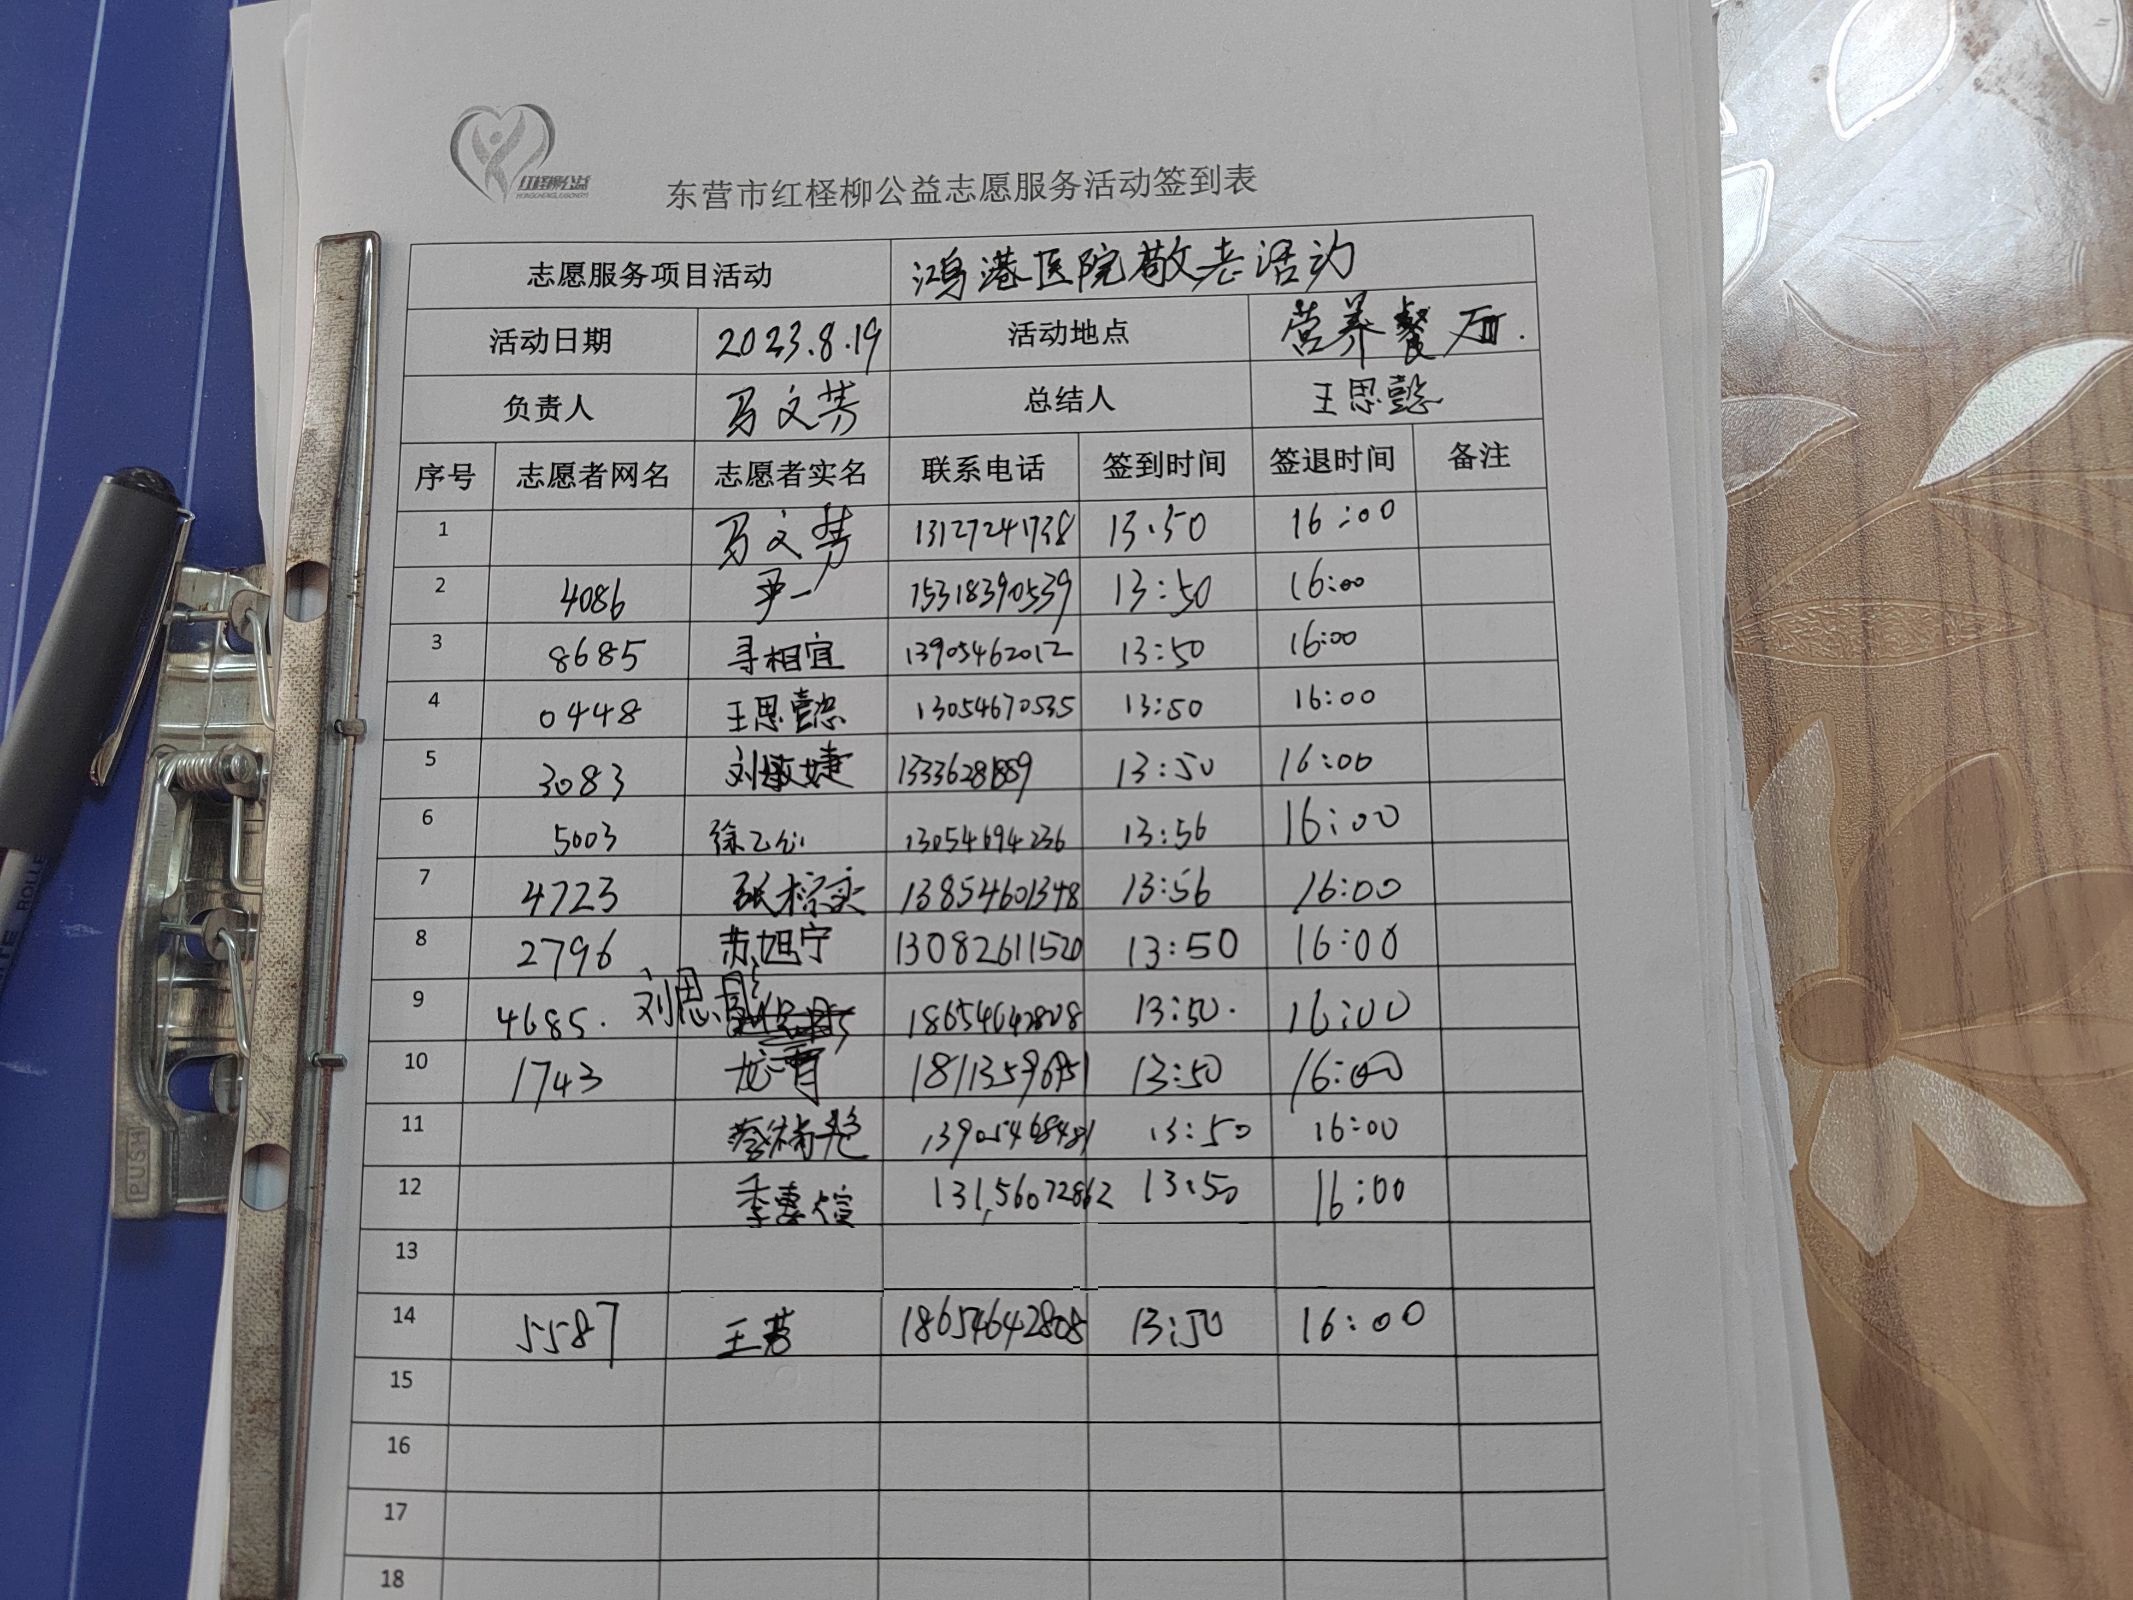 红柽柳公益
东营市红柽柳公益志愿服务活动签到表
志愿服务项目活动 鸿港医院敬老活动
活动日期 2023.8.19 活动地点 营养餐厅.
负责人 马文芳 总结人 王思懿
序号 志愿者网名 志愿者实名 联系电话 签到时间 签退时间 备注
1 马文芳 13127241738 13.50 16:00
2 4086 尹一 15318390539 13:50 16:00
3 8685 寻相宜 13905462012 13:50 16:00
4 0448 王思懿 13054670535 13:50 16:00
5 3083 刘敏婕 13336281889 13:50 16:00
6 5003 徐乙 13054694236 13:56 16:00
7 4723 张 13854601348 13:56 16:00
8 2796 苏旭宁 13082611520 13:50 16:00
9 4685. 刘思彤 18654642808 13:50. 16:00
10 1743 13:50 16:00
11 蔡 13905468481 13:50 16:00
12 季惠煊 13156072862 13:50 16:00
13
14 5587 王芳 18654642808 13:50 16:00
15
16
17
18
PUSH